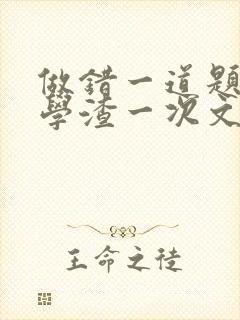 做錯一道題
學渣一次文
王命之徒